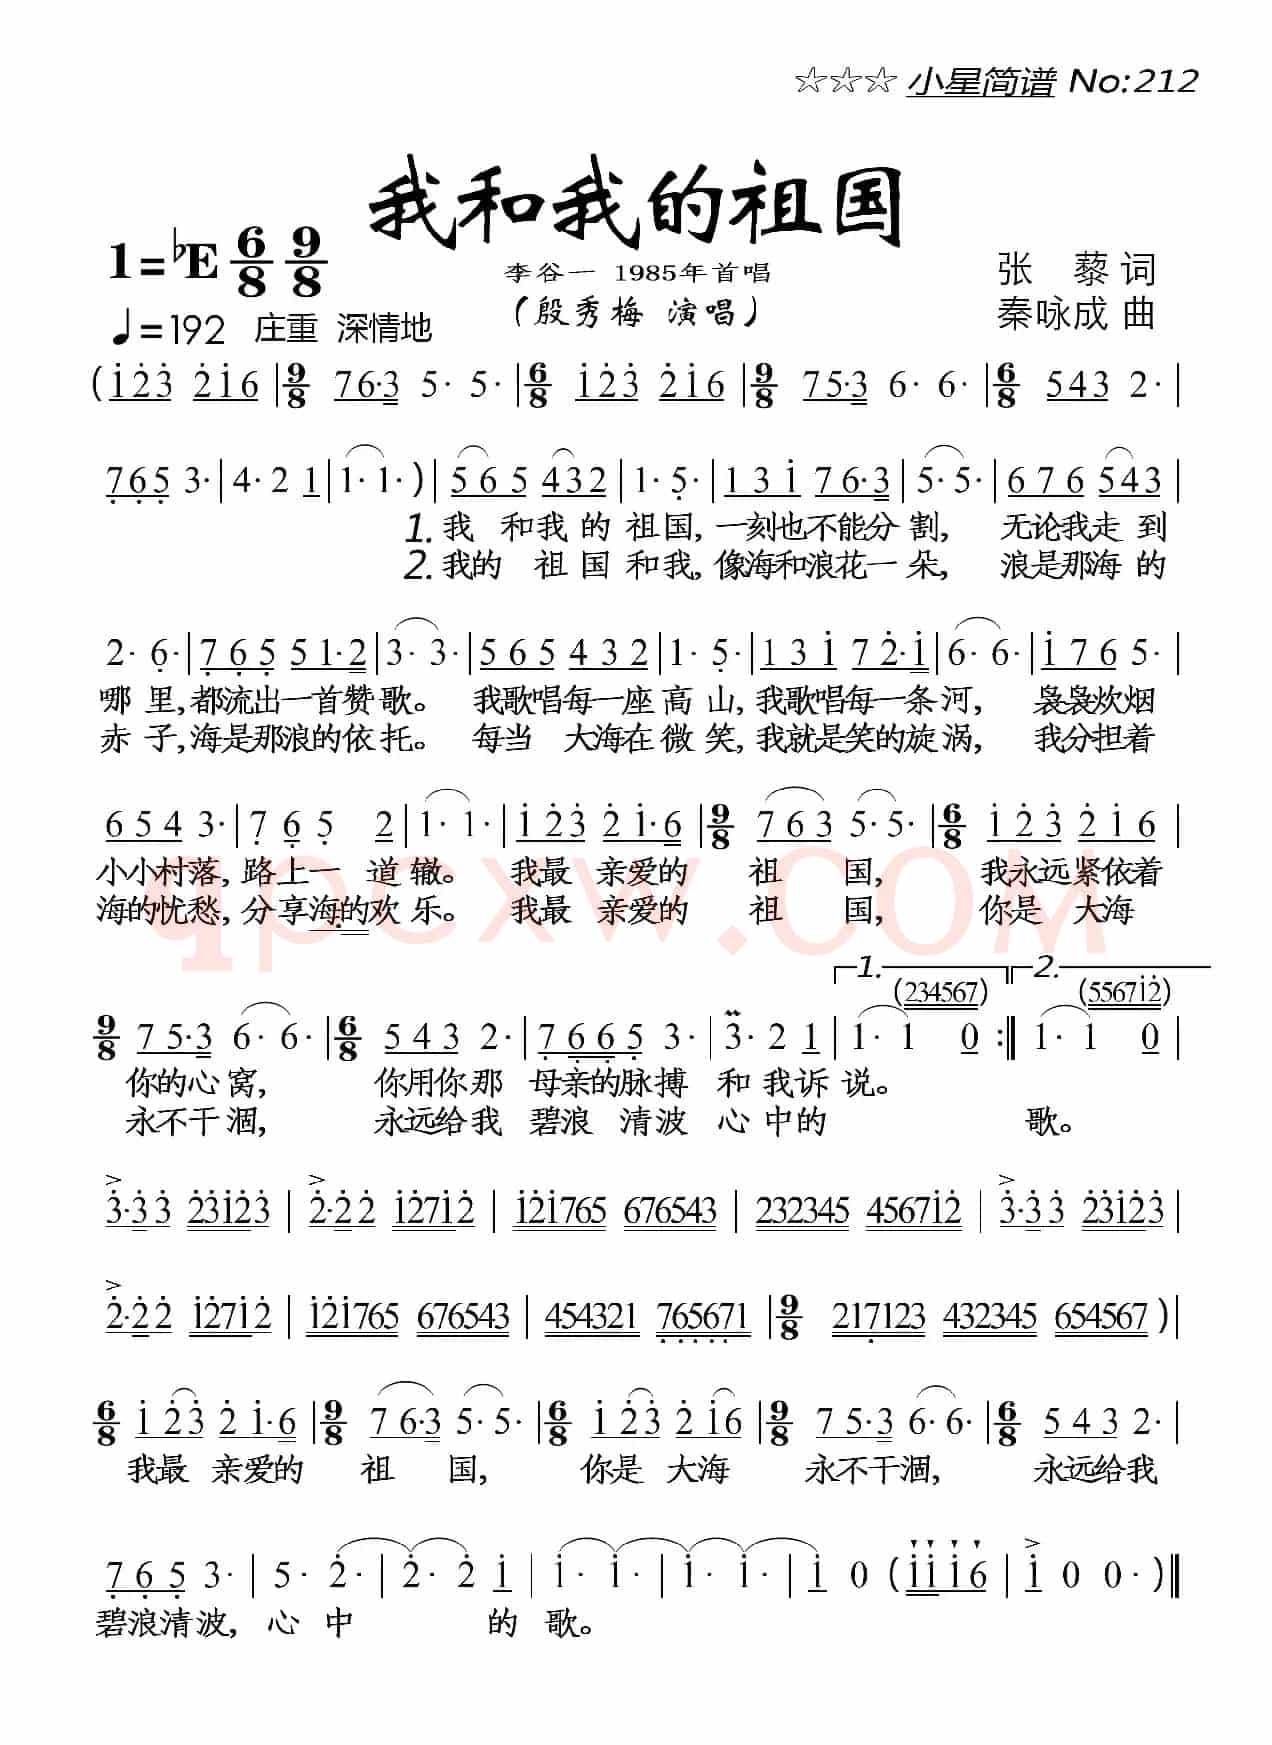 ☆☆☆ 小星简谱 No:212
我和我的祖国
1=♭E 6/8 9/8
李谷一 1985年首唱
张 藜 词
♩=192 庄重 深情地
(殷秀梅 演唱)
秦咏成 曲
(1̇2̇3̇ 2̇1̇6 | 9/8 76·3 5· 5· | 6/8 1̇2̇3̇ 2̇1̇6 | 9/8 75·3 6· 6· | 6/8 543 2· |
7̣6̣5̣ 3· | 4· 2 1 | 1· 1· ) | 5 6 5 432 | 1· 5̣· | 1 3 1̇ 76·3 | 5· 5· | 676 543 |
1.我 和我 的 祖国, 一刻也不能分割, 无论我走到
2.我的 祖国 和我, 像海和浪花一朵, 浪是那海的
2· 6̣· | 7̣ 6̣ 5̣ 5 1·2 | 3· 3· | 565 432 | 1· 5̣· | 1 3 1̇ 7 2̇·1̇ | 6· 6· | 1̇ 7 6 5· |
哪里,都流出一首赞歌。 我歌唱每一座高山,我歌唱每一条河, 袅袅炊烟
赤子,海是那浪的依托。 每当 大海在微笑,我就是笑的旋涡, 我分担着
6 5 4 3· | 7̣· 6̣· 5̣ 2 | 1· 1· | 1̇2̇3̇ 2̇1̇·6 | 9/8 7 6 3 5· 5· | 6/8 1̇ 2̇ 3̇ 2̇ 1̇ 6 |
小小村落,路上一 道辙。 我最 亲爱的 祖 国, 我永远紧依着
海的忧愁,分享海的欢乐。 我最 亲爱的 祖 国, 你是 大海
qpcxw.COM
1. (234567) 2. (55671̇2̇)
9/8 7 5·3 6· 6· | 6/8 5 4 3 2· | 7̣ 6̣ 6̣ 5̣ 3· | 3· 2 1 | 1· 1 0 :‖ 1· 1 0 |
你的心窝, 你用你那 母亲的脉搏 和我诉说。
永不干涸, 永远给我 碧浪 清波 心中的 歌。
3̇·3̇3̇ 2̇3̇1̇2̇3̇ | 2̇·2̇2̇ 1̇2̇71̇2̇ | 1̇2̇1̇765 676543 | 232345 45671̇2̇ | 3̇·3̇3̇ 2̇3̇1̇2̇3̇ |
2̇·2̇2̇ 1̇2̇71̇2̇ | 1̇2̇1̇765 676543 | 454321 7̣6̣5̣6̣7̣1 | 9/8 217̣123 432345 654567 ) |
6/8 1̇ 2̇3̇ 2̇ 1̇·6 | 9/8 7 6·3 5· 5· | 6/8 1̇ 2̇3̇ 2̇ 1̇6 | 9/8 7 5·3 6· 6· | 6/8 5 4 3 2· |
我最 亲爱的 祖 国, 你是 大海 永不干涸, 永远给我
7̣ 6̣ 5̣ 3· | 5· 2̇· | 2̇· 2̇ 1̇ | 1̇· 1̇· | 1̇· 1̇· | 1̇ 0 (1̇1̇1̇6 | 1̇ 0 0· )‖
碧浪清波, 心 中 的 歌。